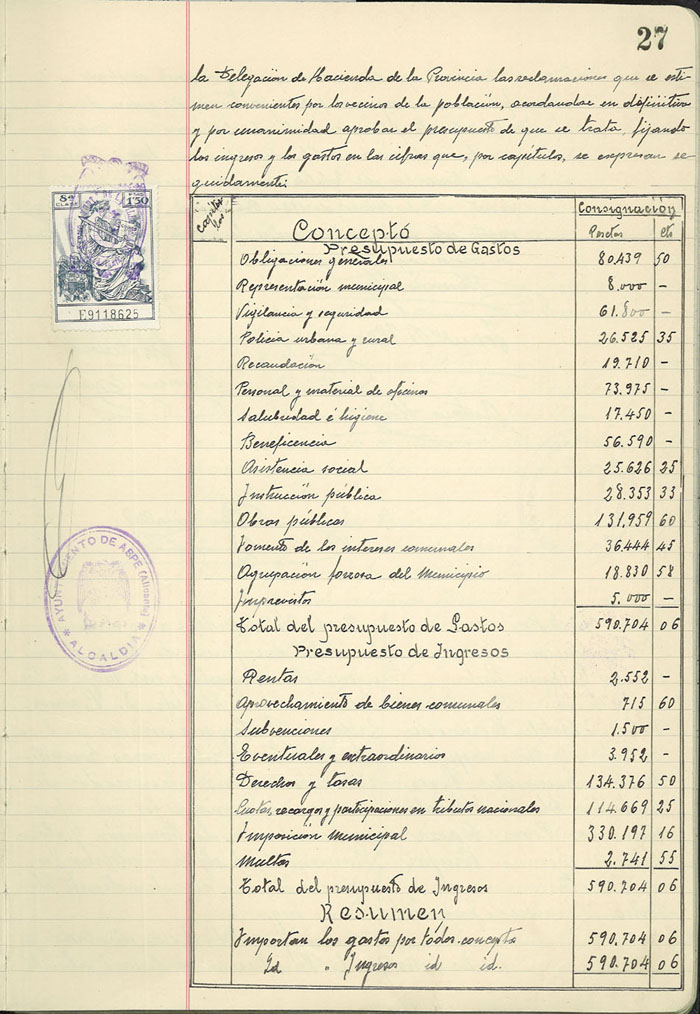 27
la Delegación de Hacienda de la Provincia las reclamaciones que se esti-
men convenientes por los vecinos de la población, acordandose en difinitiva
y por unanimidad aprobar el presupuesto de que se trata, fijando
los ingresos y los gastos en las cifras que, por capitulos, se expresan se-
guidamente:
8ª CLASE 1'50
E9118625
AYUNTAMIENTO DE ASPE (Alicante)
* ALCALDIA *
Consignación
Conceptó Pesetas Cts
Presupuesto de Gastos
Obligaciones generales 80.439 50
Representación municipal 8.000 -
Vigilancia y seguridad 61.800 -
Policia urbana y rural 26.525 35
Recaudación 19.710 -
Personal y material de oficinas 73.975 -
Salubridad é higiene 17.450 -
Beneficencia 56.590 -
Asistencia social 25.626 25
Instrucción pública 28.353 33
Obras públicas 131.959 60
Fomento de los intereses comunales 36.444 45
Agrupación forzosa del Municipio 18.830 58
Imprevistos 5.000 -
Total del presupuesto de Gastos 590.704 06
Presupuesto de Ingresos
Rentas 2.552 -
Aprovechamiento de bienes comunales 715 60
Subvenciones 1.500 -
Eventuales y extraordinarios 3.952 -
Derechos y tasas 134.376 50
Cuotas, recargos y participaciones en tributos nacionales 114.669 25
Imposición Municipal 330.197 16
Multas 2.741 55
Total del presupuesto de Ingresos 590.704 06
Resumen
Importan los gastos por todos conceptos 590.704 06
Id " Ingresos id id. 590.704 06